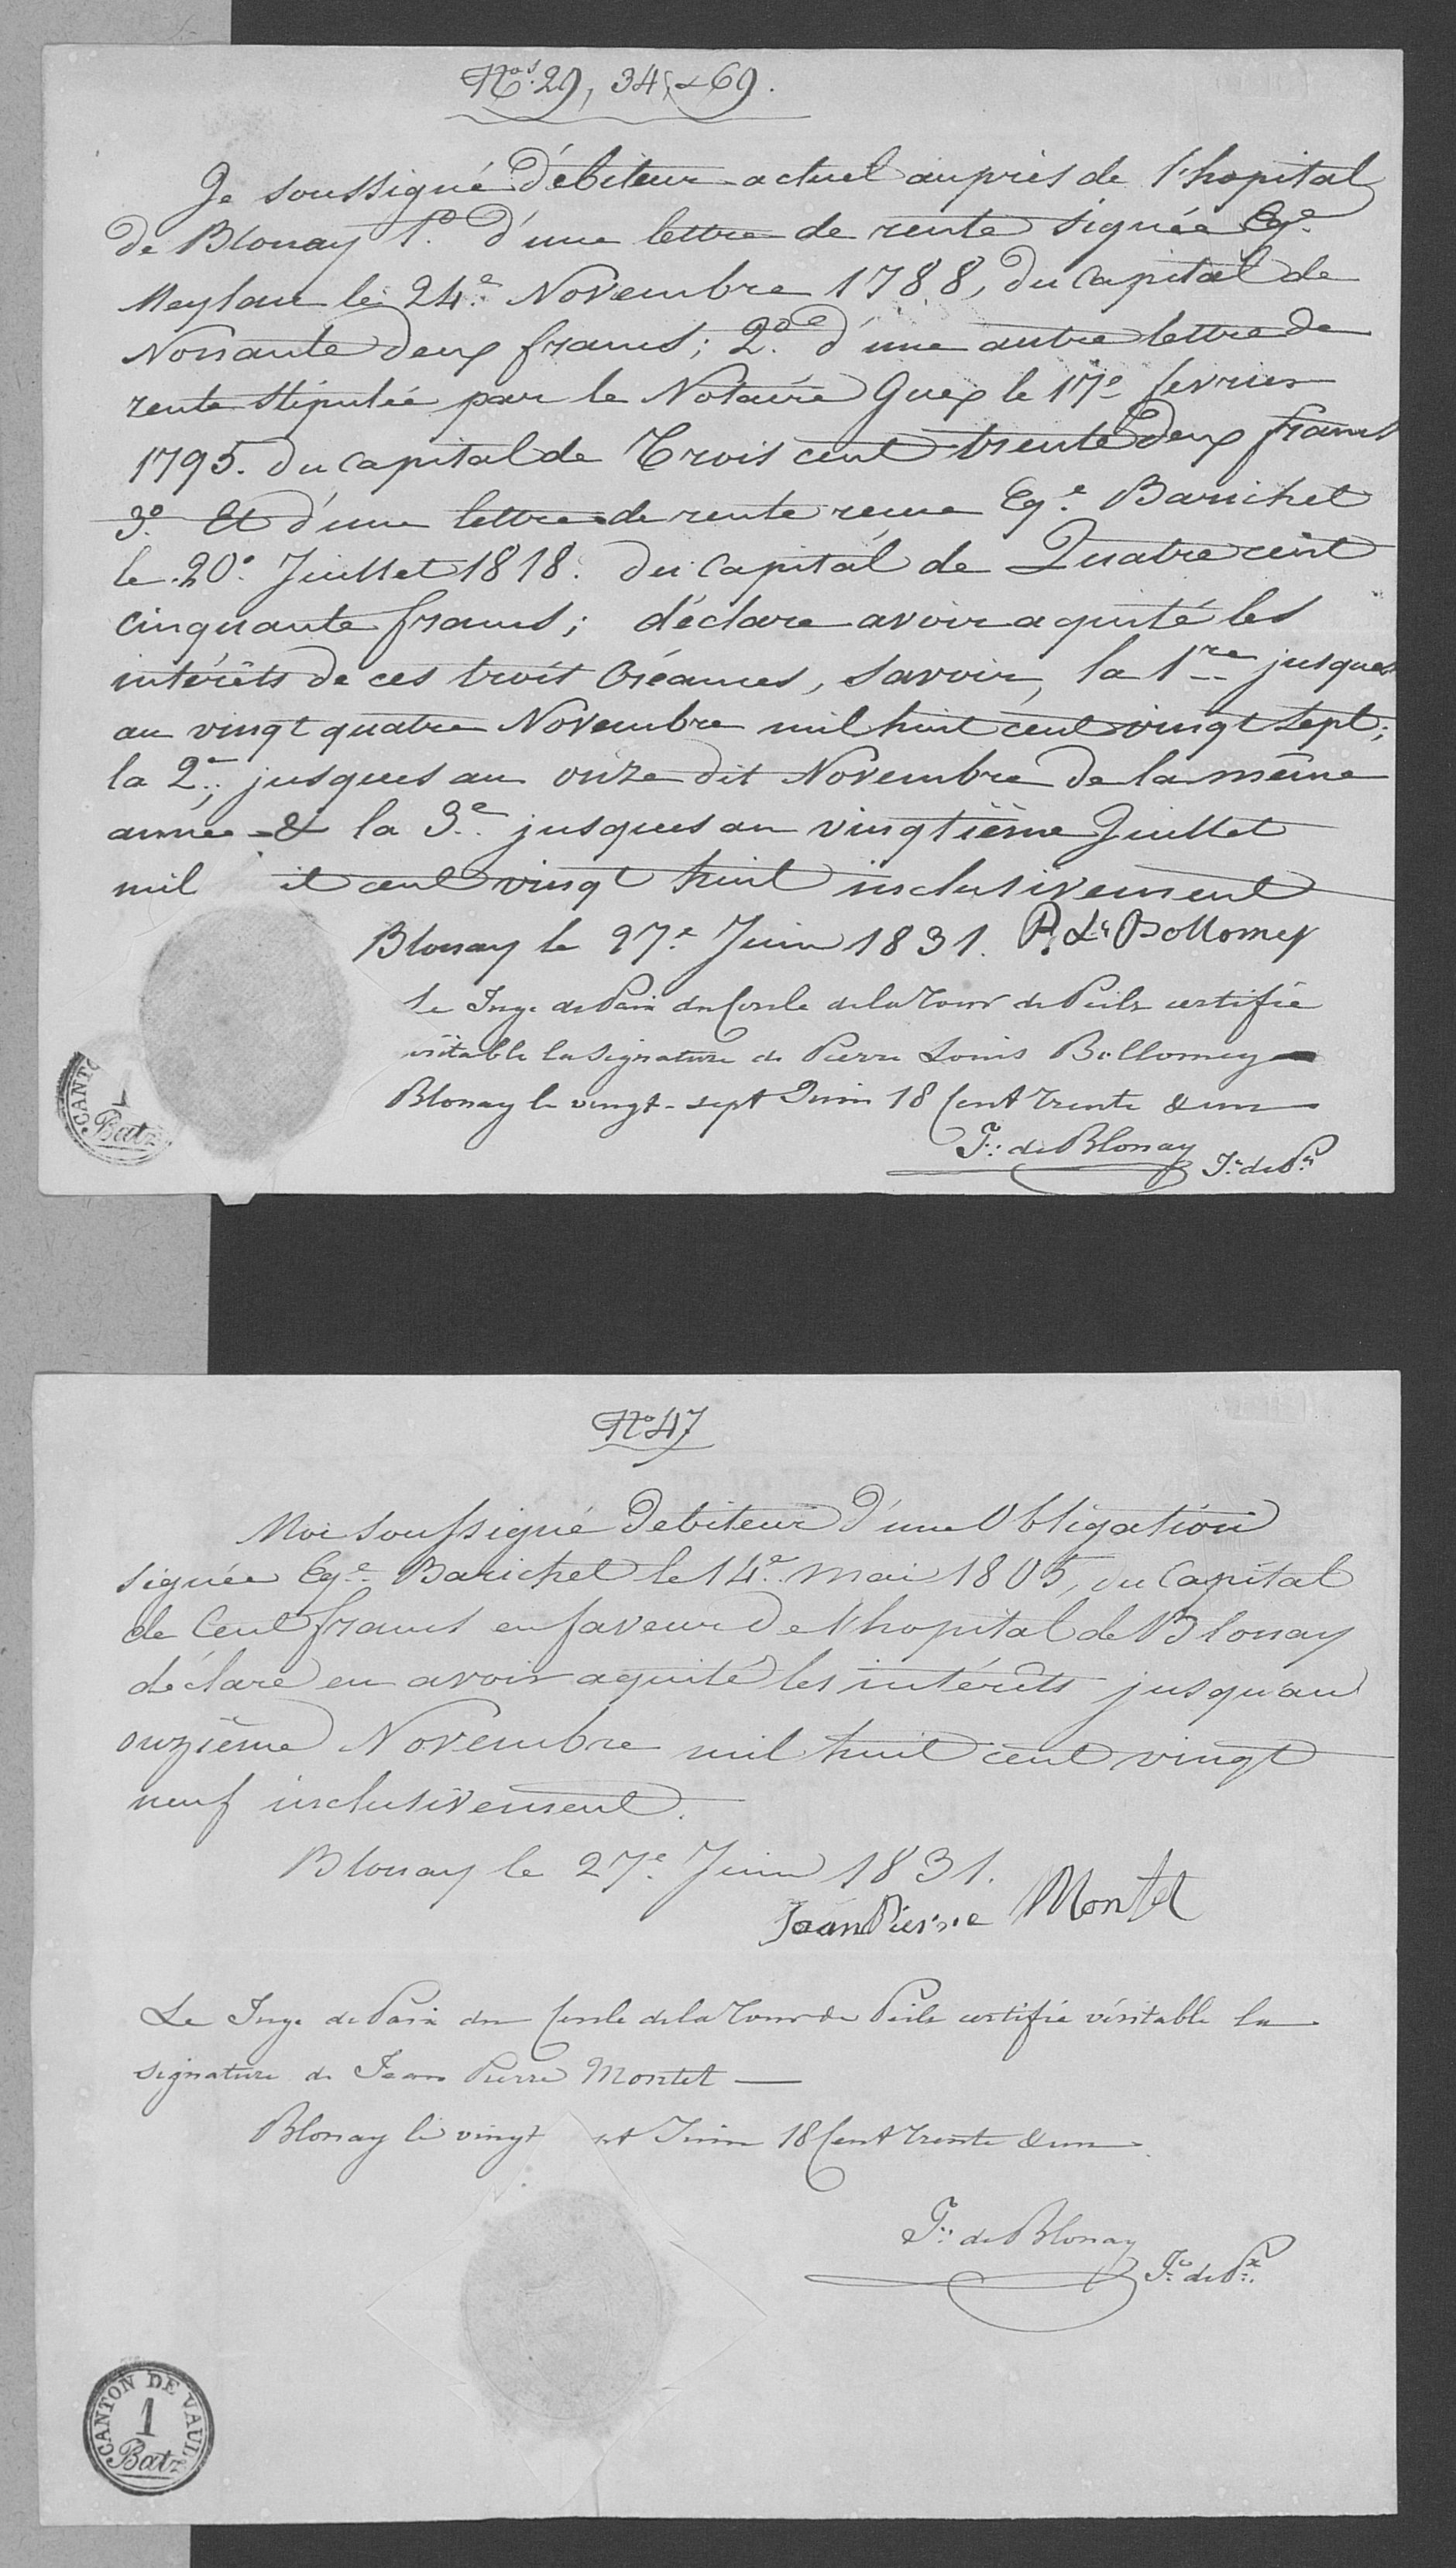 Nos. 29, 34, & 69.
Je soussigné Débiteur actuel auprès de l'hopital
de Blonay 1o. d'une lettre de rente signée Ege.
Meylan le 24e. Novembre 1788, du Capital de
Nonante deux francs; 2o. d'une autre lettre de
rente stipulée par le Notaire Guex le 17e fevrier
1795. du Capital de Trois cent trente deux francs
3o. Et d'une lettre de rente recue Ege. Barichet
le 20e. Juillet 1818. du Capital de Quatre cent
cinquante francs; déclare avoir aquité les
intérêts de ces trois Créances, savoir, la 1re jusques
au vingt quatre Novembre mil huit cent vingt sept;
la 2e; jusques au onze dit Novembre de la même
année & la 3e. jusques au vingtième Juillet
mil it cent vingt huit inclusivement
Blonay le 27e. Juin 1831. P. Ls Bollomey
Le Juge de Paix du Cercle de la Tour de Peilz certifie
véritable la signature de Pierre Louis Bollomey
Blonay le vingt-sept Juin 18 Cent trente & un
F: de Blonay J. de Px
CANTO
1
Batz
No 47
Moi soussigné Debiteur d'une Obligation
signée Ege. Barichet le 14e. Mai 1805, du Capital
de Cent francs en faveur de l'hopital de Blonay
déclare en avoir aquité les intérêts jusqu'au
onzième Novembre mil huit cent vingt
neuf inclusivement.
Blonay le 27e. Juin 1831.
Jean Pierre Montet
Le Juge de Paix du Cercle de la Tour de Peilz certifie véritable la
signature de Jean Pierre Montet —
Blonay le vingt pt Juin 18 Cent trente & un
F: de Blonay
J. de Px.
CANTON DE VAUD
1
Batz